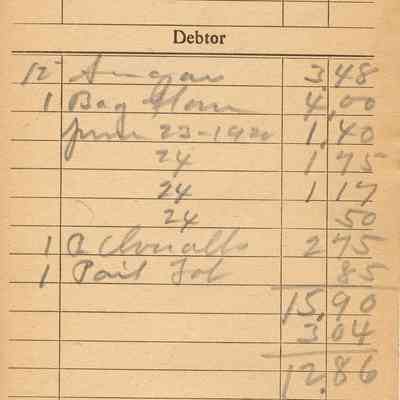 Debtor
12 Sugar 3 48
1 Bag Flour 4 00
June 23-1920 1 40
24 1 75
24 1 17
24 50
1 Overalls 2 75
1 Pail Tob 85
15,90
3 04
12.86